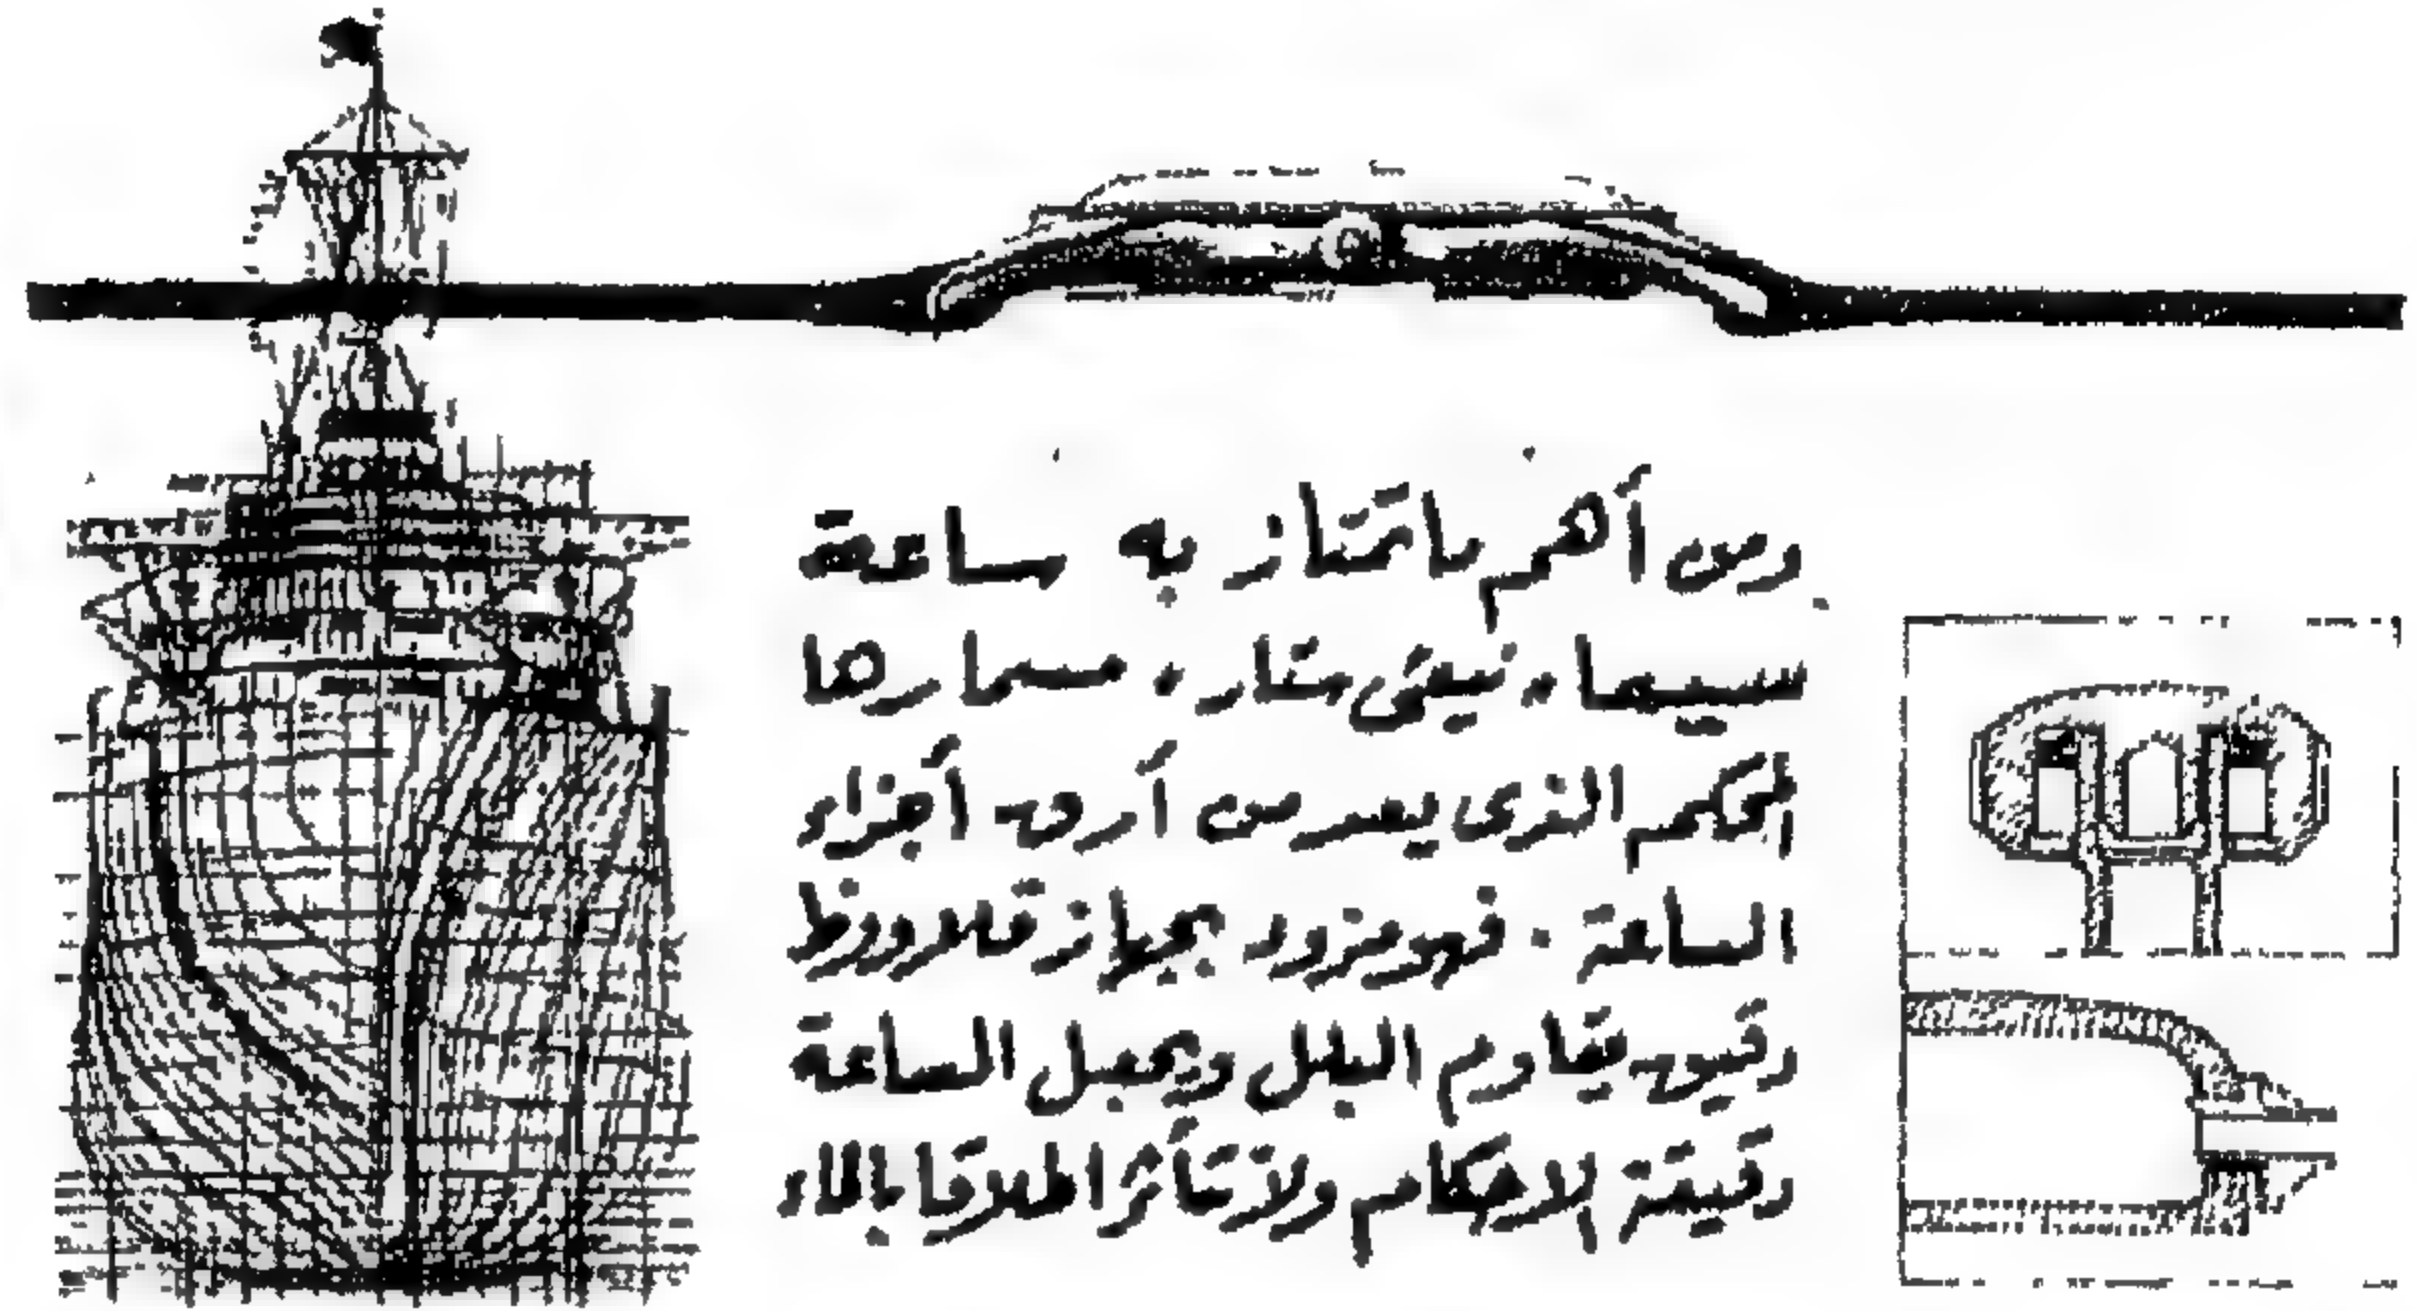 ومن أهم ما تمتاز به ساعة
سيما ، نيفى ستار ، مسمارها
المحكم الذى يعد من أدق أجزاء
الساعة . فهو مزود بجهاز قلاووظ
دقيق يقاوم البلل ويجعل الساعة
دقيقة الإحكام ولا تتأثر اطلاقا بالماء